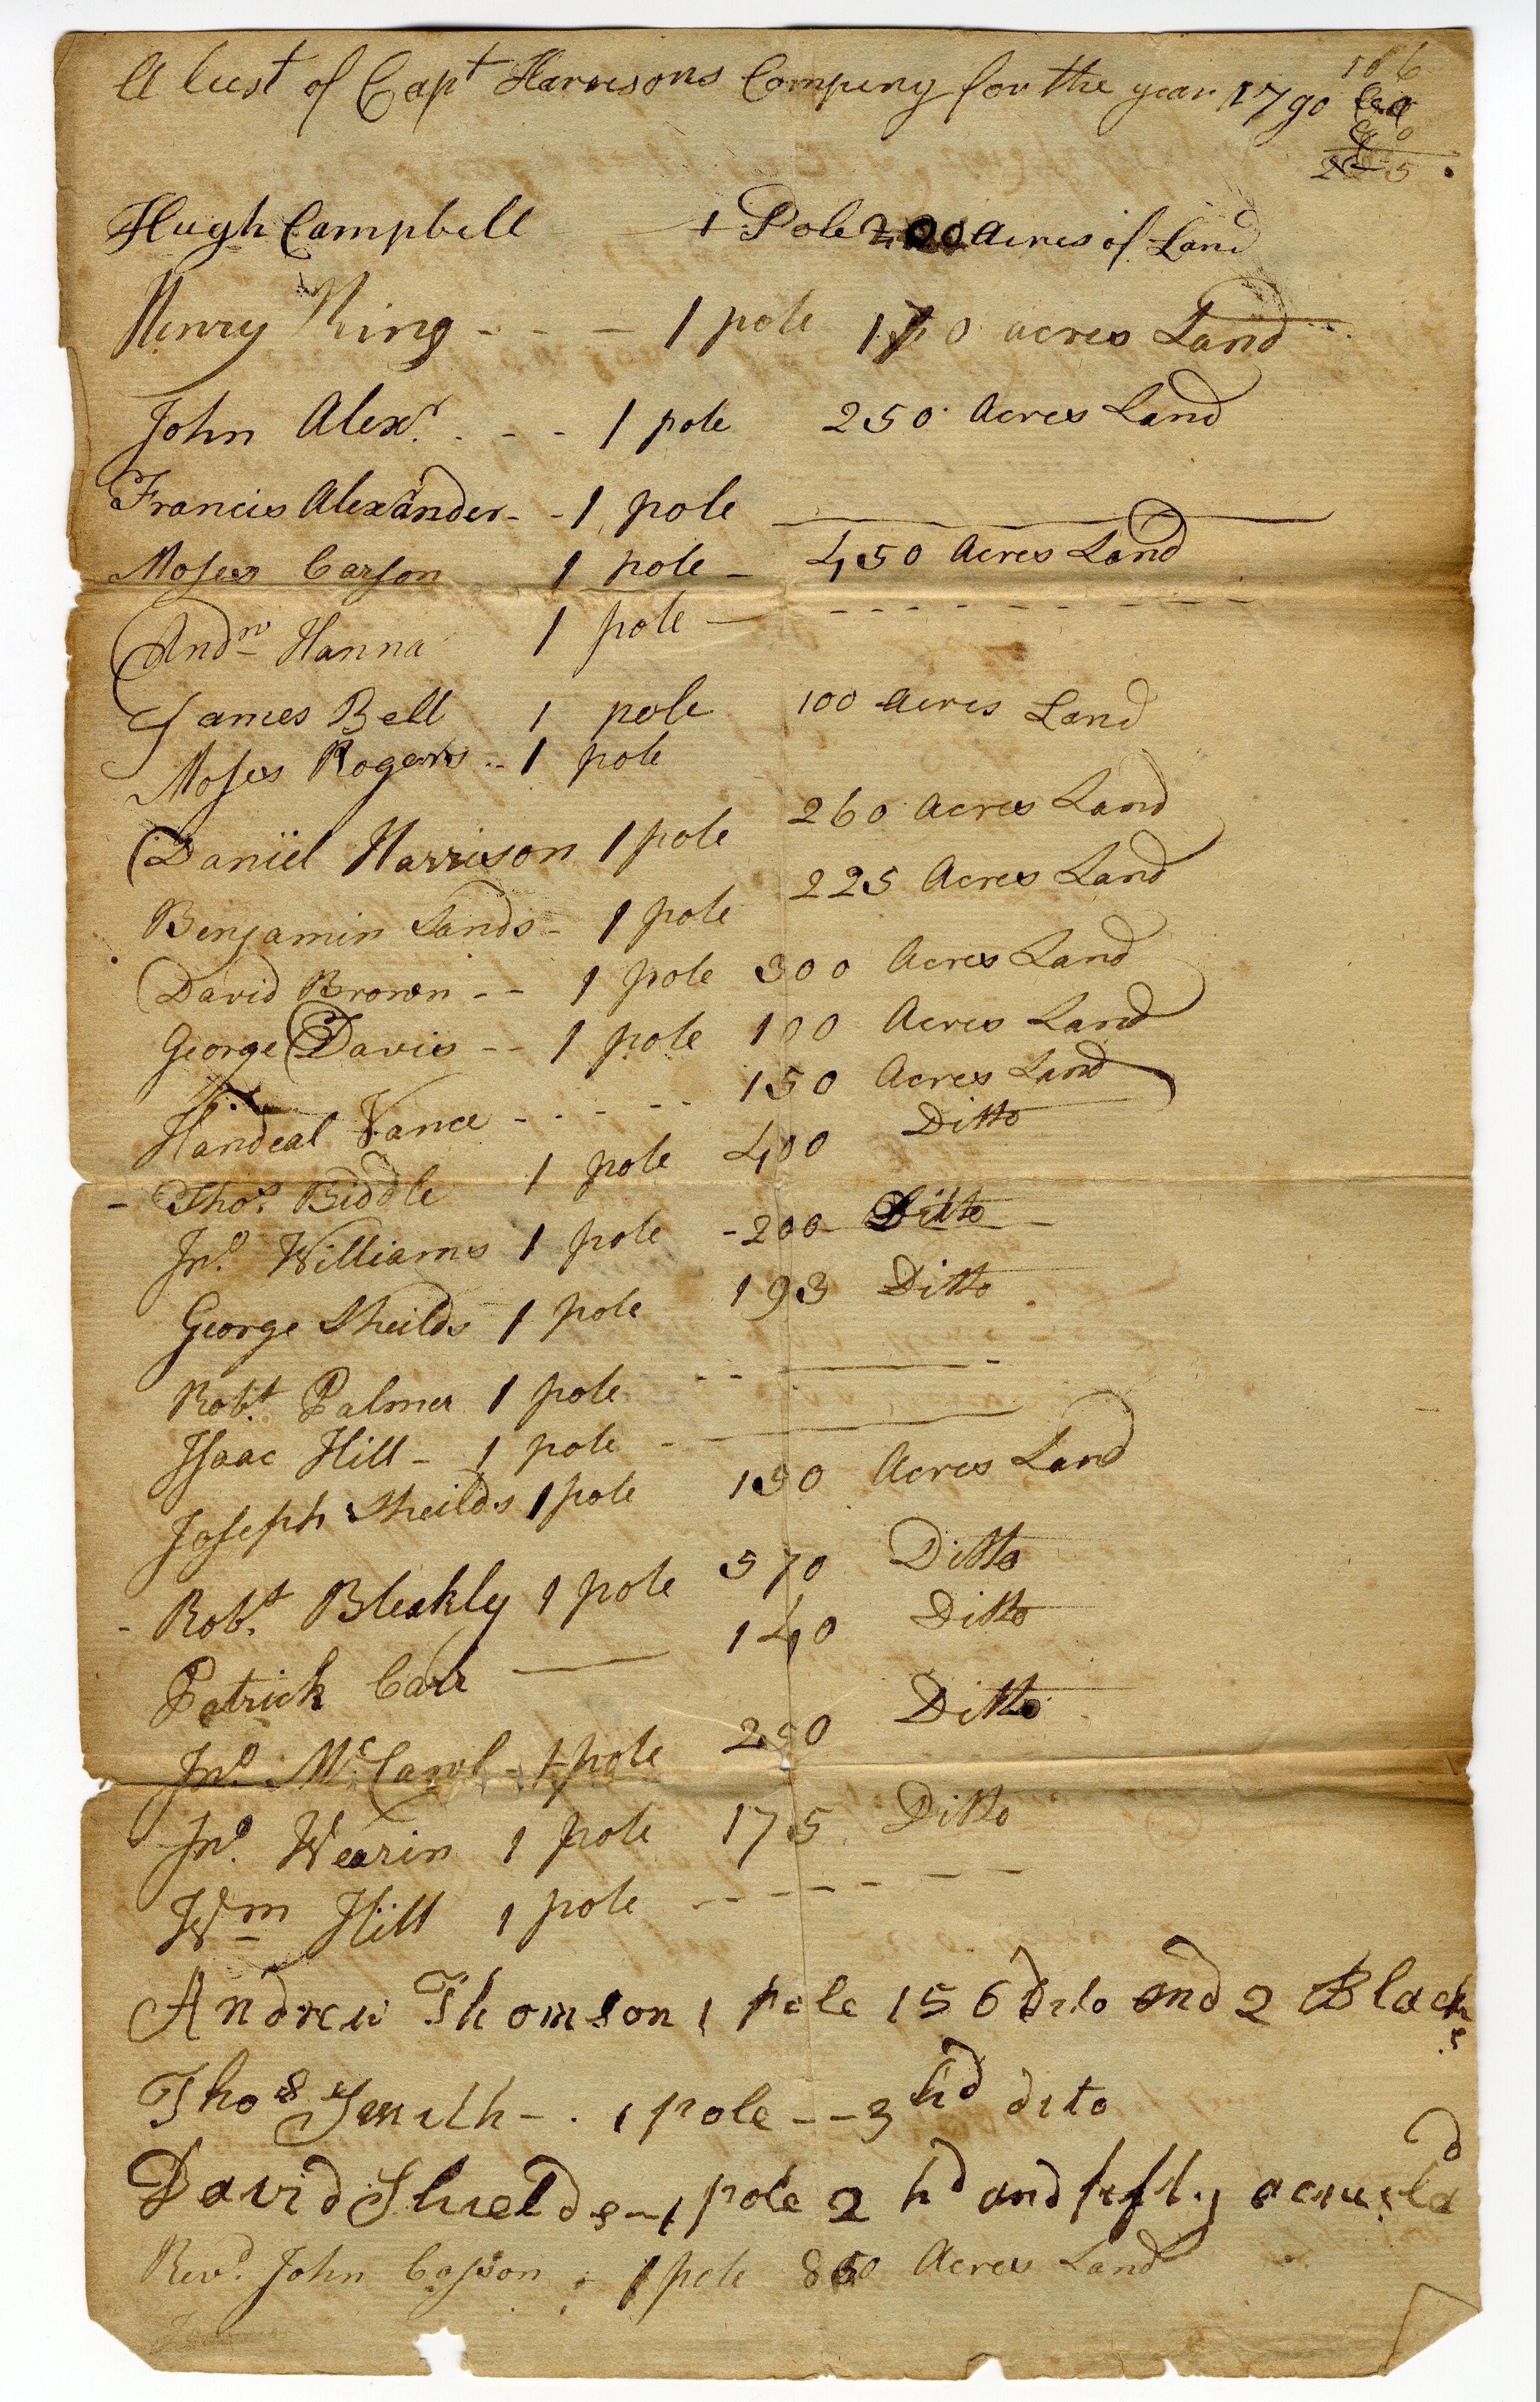 A list of Capt Harrisons Compeny for the year 1790
Hugh Campbell 1 Pole 200 acres of Land
Henry King - - - 1 pole 170 acres Land
John Alexr. - - - 1 pole 250 Acres Land
Francis Alexander - - 1 pole
Moses Carson 1 pole - 450 Acres Land
Andw Hanna 1 pole - - - - - - - - -
James Bell 1 pole 100 acres Land
Moses Rogers - - 1 pole
Daniel Harrison 1 pole 260 Acres Land
Benjamin Sands - 1 pole 225 Acres Land
David Brown - - 1 pole 300 Acres Land
George Davis - - 1 pole 100 Acres Land
Handeal Vance - - - - - 150 Acres Land
- Thos. Biddle 1 pole 400 Ditto
Jno. Williams 1 pole - 200 - Ditto -
George Sheilds 1 pole 193 Ditto
Robt. Palmer 1 pole - -
Isaac Hill - 1 pole -
Joseph Sheilds 1 pole 150 Acres Land
- Robt. Bleakly 1 pole 570 Ditto
Patrick Carr 140 Ditto
Jno. Mc - 1 pole 250 Ditto
Jno. Wearin 1 pole 175 Ditto
Wm Hill 1 pole - - - - - -
Andrew Thomson 1 pole 156 Dito and 2 Blacks
Thos Smith - . 1 pole - - 3 hd dito
David Shields - 1 pole 2 hd and fifty acres Lad
Revd. John Cosson 1 pole Acres Land